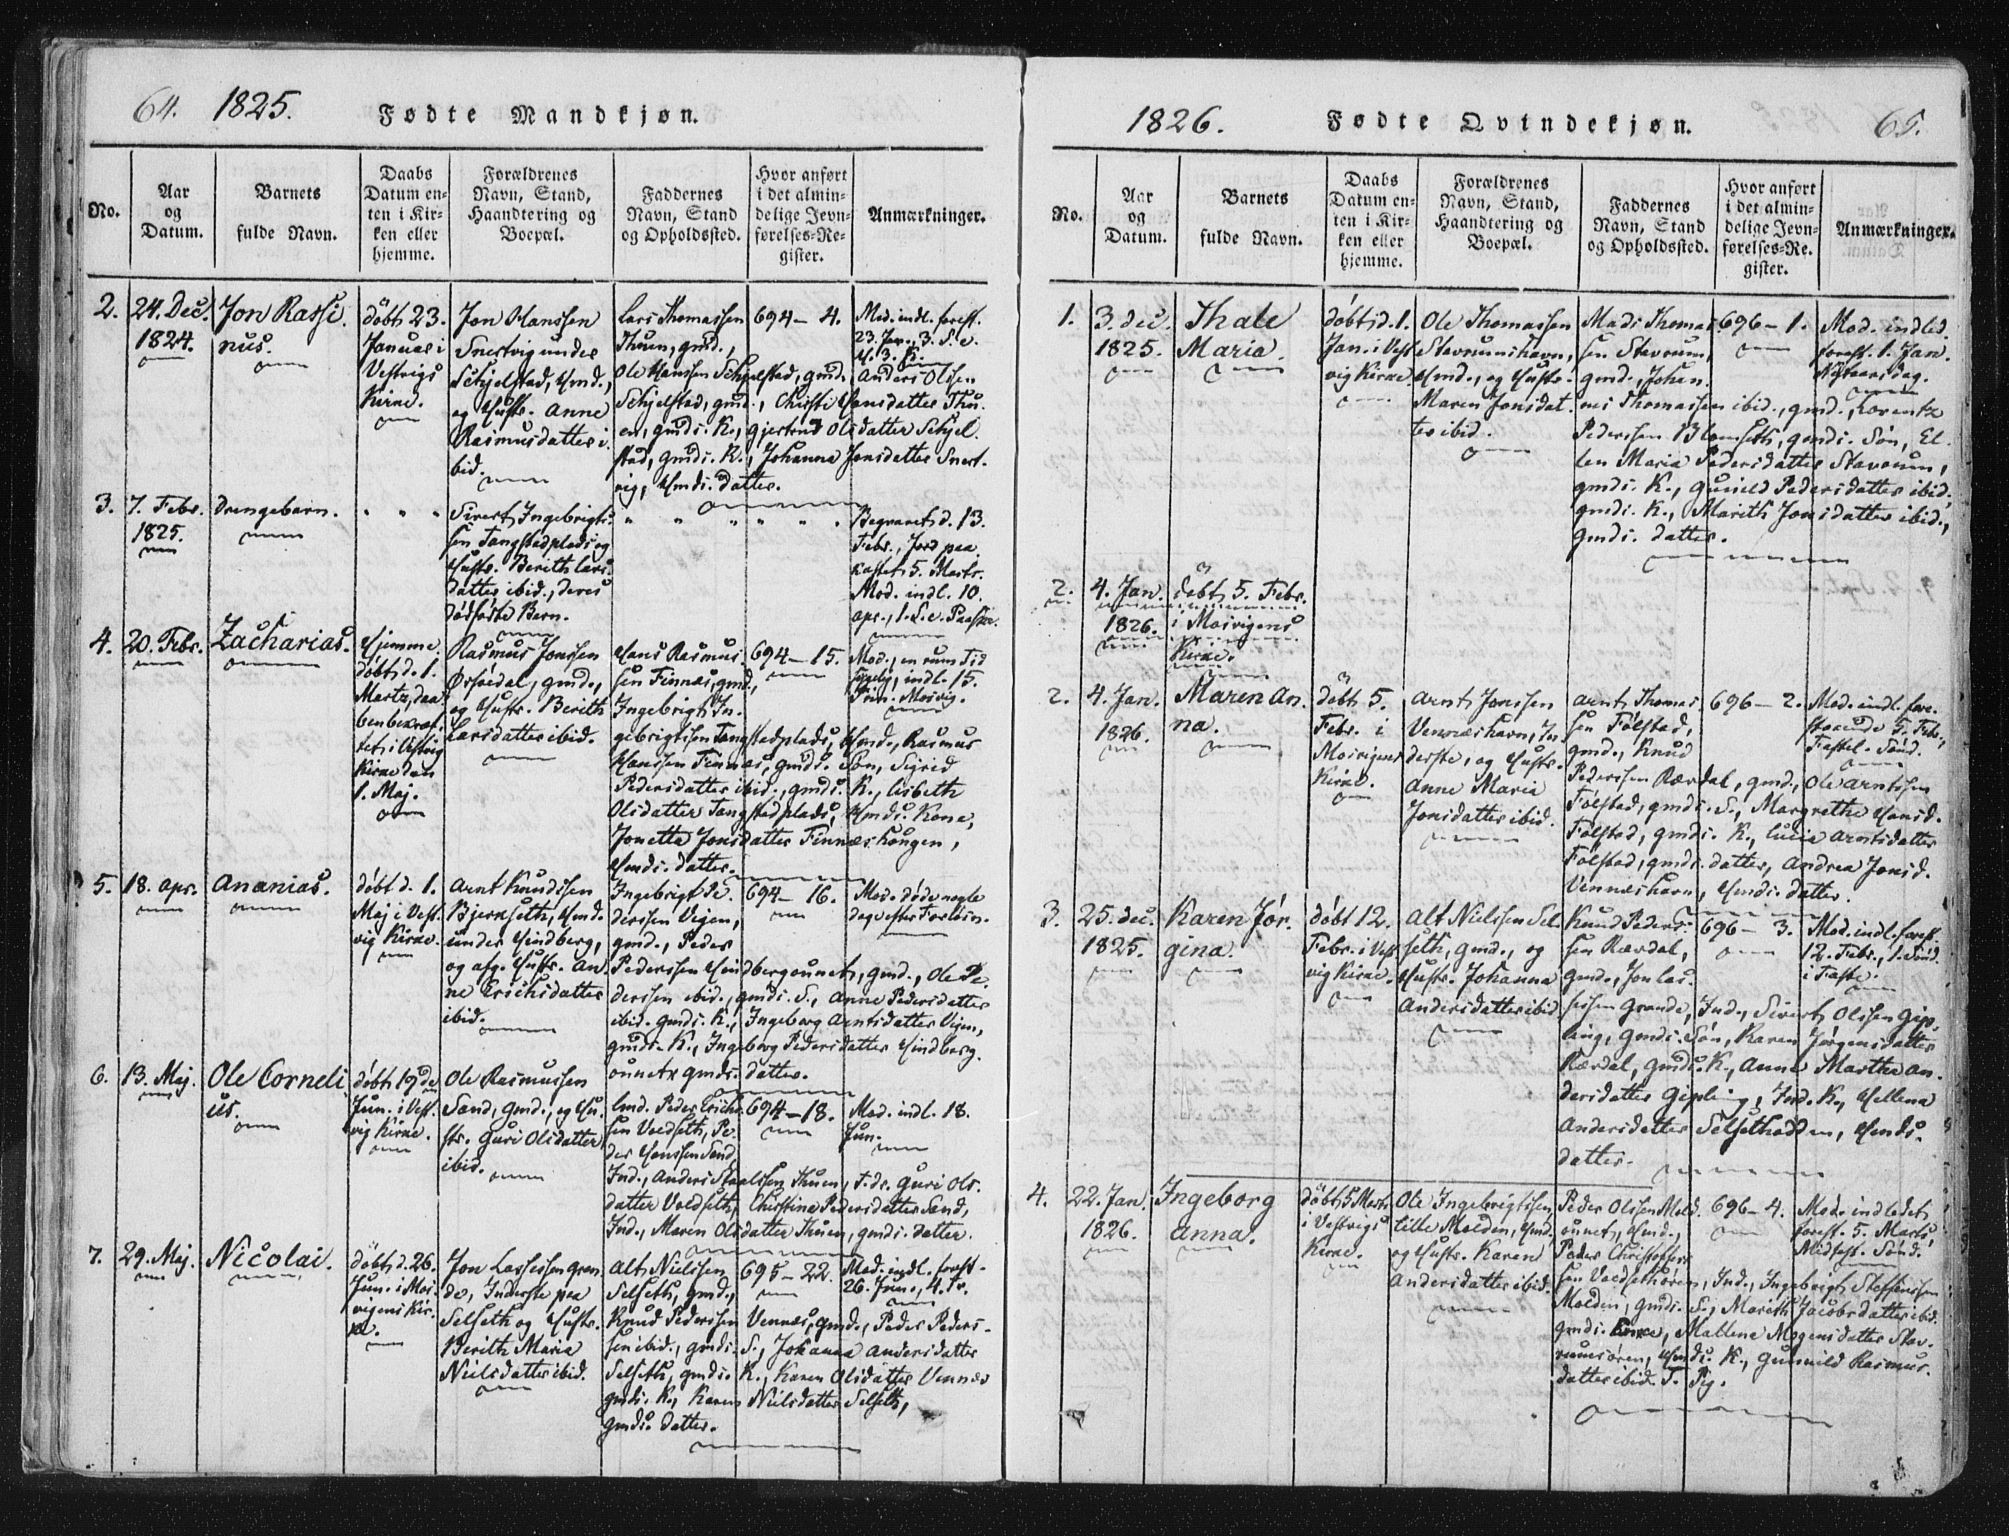 64. 1825. Fødte Mandkjøn.
No.
Aar
og
Datum.
Barnets
fulde Navn.
Daabs
Datum en-
ten i Kir-
ken eller
hjemme.
Forældrenes
Navn, Stand,
Haandtering og
Boepæl.
Faddernes
Navn, Stand
og Opholdssted.
Hvor anført
i det almin-
delige Jevn-
førelses-Re-
gister.
Anmærkninger.
2.
24. Dec.
1824.
Jon Rassi
nus.
döbt 23.
Januar i
Vestvigs
Kirke.
Jon Hanssen
Snertvig under
Schjelstad, Hmd.,
og Hustr. Anne
Rasmusdatter i
bid.
Lars Thomassen
Thuen, gmd.,
Ole Hanssen Schjelstad, gmd.,
Schjelstad, gmd., Christi Hansdatter Thu-
en, gmds. K., Gjertrud Olsdatter Schjel-
stad, gmds. K., Johanna Jonsdatter Snert-
vig, Hmds. datter.
694 – 4.
Mod. indl. forest.
23. Jan., 3. S. e.
H. 3. K.
Anders Olsen
3.
7. Febr.
1825.
drengebarn.
" " "
Sivert Ingebrigt-
sen Tangstadplads og
Hustr. Berith Lars-
datter ibid., deres
dødfødte Barn.
" " " " " "
Begravet d. 13.
Febr., Jord paa-
kastet 5. Marts.
Mod. indl. 10.
Apr., 1. S. e. Paaske.
4.
20. Febr.
Zacharias.
Hjemme-
döbt d. 1.
Marts, daa-
ben bekræf-
tet i Vestvig
Kirke den
1. Maj.
Rasmus Jonssen
Ørsøedal, gmd.,
og Hustr. Berith
Larsdatter ibid.
Hans Rasmus-
sen Finnæs, gmd.,
Ingebrigt In-
gebrigtsen Tangstadplads, Hmd., Rasmus
Hanssen Finnæs, gmds. Søn, Sigrid
Pedersdatter ibid., gmds. K., Lisbeth
Olsdatter Tangstadplads, Hmds. Kone,
Jonetta Jonsdatter Finnæshougen,
Hmds. datter.
694 – 15.
Mod., en rum Tid
indl. 15.
Mosvig.
5.
18. Apr.
Ananias.
döbt d. 1.
Maj i Vest-
vig Kirke.
Arnt Knudssen
Bjerkseth, Hmd.
under Hindberg,
og afg. Hustr. An-
ne Erichsdatter
ibid.
Ingebrigt Pe-
derssen Vejen,
gmd., Peder
Pederssen Hindbergaunet, gmd., Ole Pe-
derssen ibid., gmds. S., Anne Pedersdatter
ibid. gmds. K., Ingeborg Arntsdatter Vejen,
gmds. K., Ingeborg Pedersdatter Hindberg-
ounet gmds. datter.
694 – 16.
Mod. döde nogle
dage efter Forløsn.
6.
13. Maj.
Ole Corneli
us.
döbt 19de
Jun. i Vest-
vig Kirke.
Ole Rasmussen
Sand, gmd., og Hu-
str. Guri Olsdatter
ibid.
Lmd. Peder Erich-
sen Voldseth, Pe-
der Hanssen Sand,
Ind., Anders Staalssen Thuen, T.dr. Guri Ols-
datter Voldseth, Christina Pedersdatter Sand,
Ind., Maren Olsdatter Thuen, gmds. datter.
694 – 18.
Mod. indl. 18.
Jun.
7.
29. Maj.
Nicolai.
döbt d. 26.
Jun. i Mos-
vigens Kir-
ke.
Jon Lassessen Gran-
de, Inderste paa
Selseth og Hustr.
Berith Maria
Nielsdatter ibid.
Alt Nielssen
Selseth, gmd.,
Knud Pederssen Vennæs, gmd., Peder Peders-
sen ibid., gmds. S., Johanna Andersdatter
Selseth, gmds. K., Karen Olsdatter Vennæs
gmds. K., Karen Nielsdatter Selseth,
gmds. datter.
695 – 22.
Mod. indl. forest.
26. Juni, 4. Tr.
1826. Fødte Qvindekjøn. 65.
No.
Aar
og
Datum.
Barnets
fulde Navn.
Daabs
Datum en-
ten i Kir-
ken eller
hjemme.
Forældrenes
Navn, Stand,
Haandtering og
Boepæl.
Faddernes
Navn, Stand
og Opholdssted.
Hvor anført
i det almin-
delige Jevn-
førelses-Re-
gister.
Anmærkninger.
1.
3. Dec.
1825.
Thale
Maria.
döbt d. 1.
Jan. i Vest-
vig Kirke.
Ole Thomassen
Stavrumshavn,
Hmd., og Hustr.
Maren Jonsdat-
ter ibid.
Mads Thomas-
sen Stavrum,
gmd., Johan-
nes Thomassen ibid., gmd., Lorentz
Pederssen Blomseth, gmds. Søn, El-
len Maria Pedersdatter Stavrum,
gmds. K., Gunild Pedersdatter ibid.
gmds. K., Marith Jonsdatter ibid.,
gmds. datter.
696 – 1.
Mod. indled.
forest. 1. Jan.
Nytaarsdag.
2.
4. Jan.
1826.
döbt 5. Febr.
i Mosvigens
Kirke.
2.
4. Jan.
1826.
Maren An-
na.
döbt 5.
Febr. i
Mosvigens
Kirke.
Arnt Jonssen
Vennæshavn, In-
derste, og Hustr.
Anne Maria
Jonsdatter ibid.
Arnt Thomas-
sen Følstad,
gmd., Knud
Pederssen Rærdal, gmd., Ole Arntssen
Følstad, gmds. S., Margrethe Hansd.
Følstad, gmds. K., Lucia Arntsdatter
Følstad, gmds. datter, Andrea Jonsd.
Vennæshavn, Hmds. datter.
696 – 2.
Mod. indl. fore-
staaende 5. Febr.,
Fastel. Sönd.
3.
25. Dec.
1825.
Karen Jör-
gina.
döbt 12.
Febr. i Vest-
vig Kirke.
Alt Nielssen Sel-
seth, gmd., og
Hustr. Johanna
Andersdatter ibid.
Knud Peders-
sen Rærdal,
gmd., Jon Las-
sessen Grande, Ind., Sivert Olssen Gip-
ling, gmds. Søn, Karen Jørgensdatter
Rærdal, gmds. K., Anne Martha An-
dersdatter Gipling, Ind. K., Hellena
Andersdatter Selsethodden, Hmds.
datter.
696 – 3.
Mod. indl. forest.
12. Febr., 1. Sönd.
i Faste.
4.
22. Jan.
1826.
Ingeborg
Anna.
döbt 5 Marts
i Vestvigs
Kirke.
Ole Ingebrigtssen
lille Molden, Hmd.
og Hustr. Karen
Andersdatter ibid.
Peder Olssen Mold-
ounet, Hmd.,
Peder Christoffers-
sen Voldsethören, Ind., Ingebrigt Steffenssen
Molden, gmds. S., Marith Jacobsdatter ibid.
gmds. Kone, Mallena Mogensdatter Stav-
rumsören, Hmds. K., Gunnild Rasmus-
datter ibid. T. Pig.
696 – 4.
Mod. indledet
forest. 5. Marts,
Midfast. Sönd.